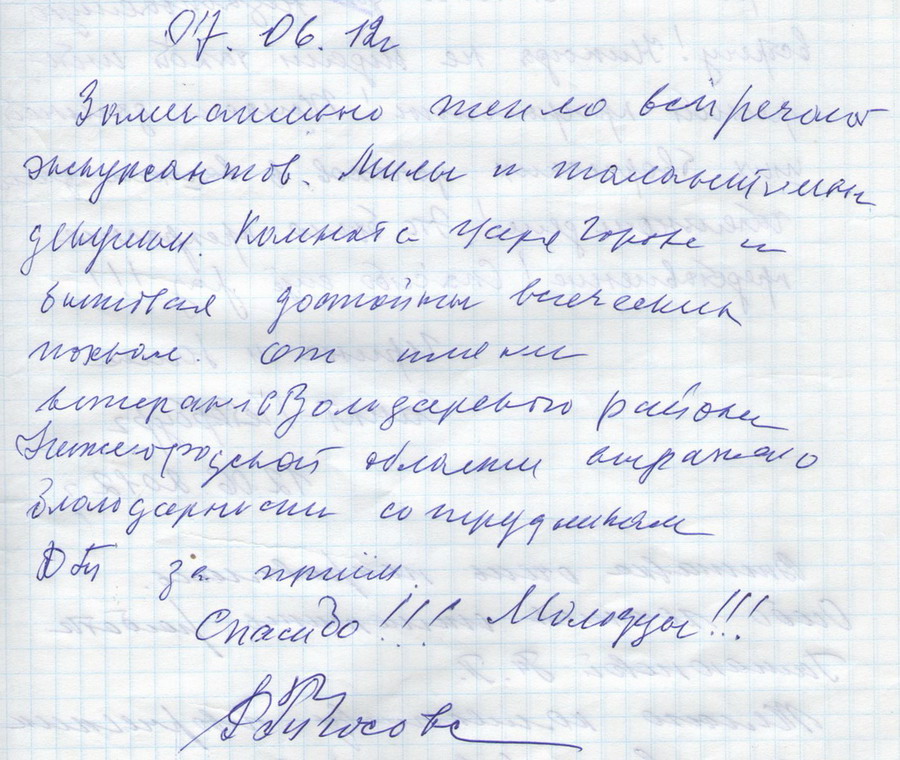 07. 06. 12г
Замечательно тепло встречают
экскурсантов. Милы и талантливы
девушки. Комната царя Гороха и
бытовая достойны всяческих
похвал. От имени
ветеранов Володарского района
Нижегородской области выражаю
благодарности сотрудникам
за приём.
Спасибо!!! Молодцы!!!